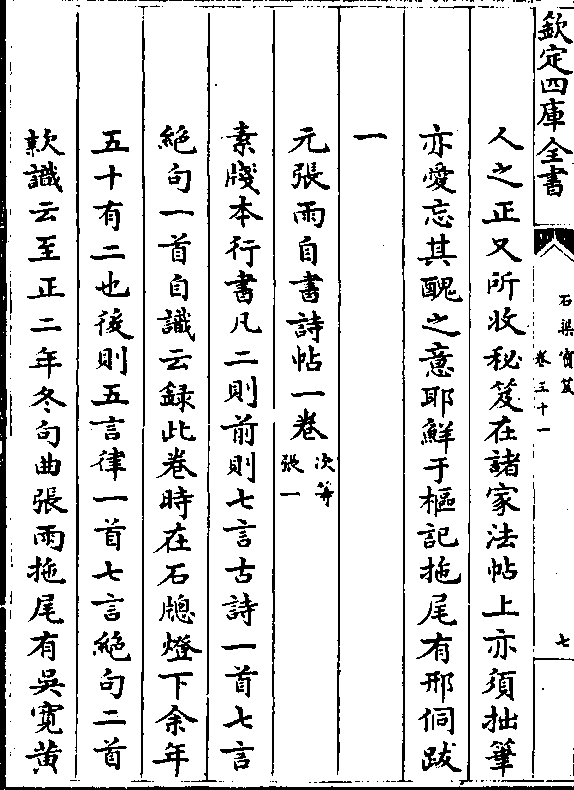 欽定四庫全書
石渠寶笈
卷三十一
七
人之正又所收秘笈在諸家法帖上亦須拙筆
亦愛忘其醜之意耶鮮于樞記拖尾有邢侗跋
一
元張雨自書詩帖一卷次等張一
素牋本行書凡二則前則七言古詩一首七言
絶句一首自識云録此卷時在石牎燈下余年
五十有二也後則五言律一首七言絶句二首
款識云至正二年冬句曲張雨拖尾有吳寛黄